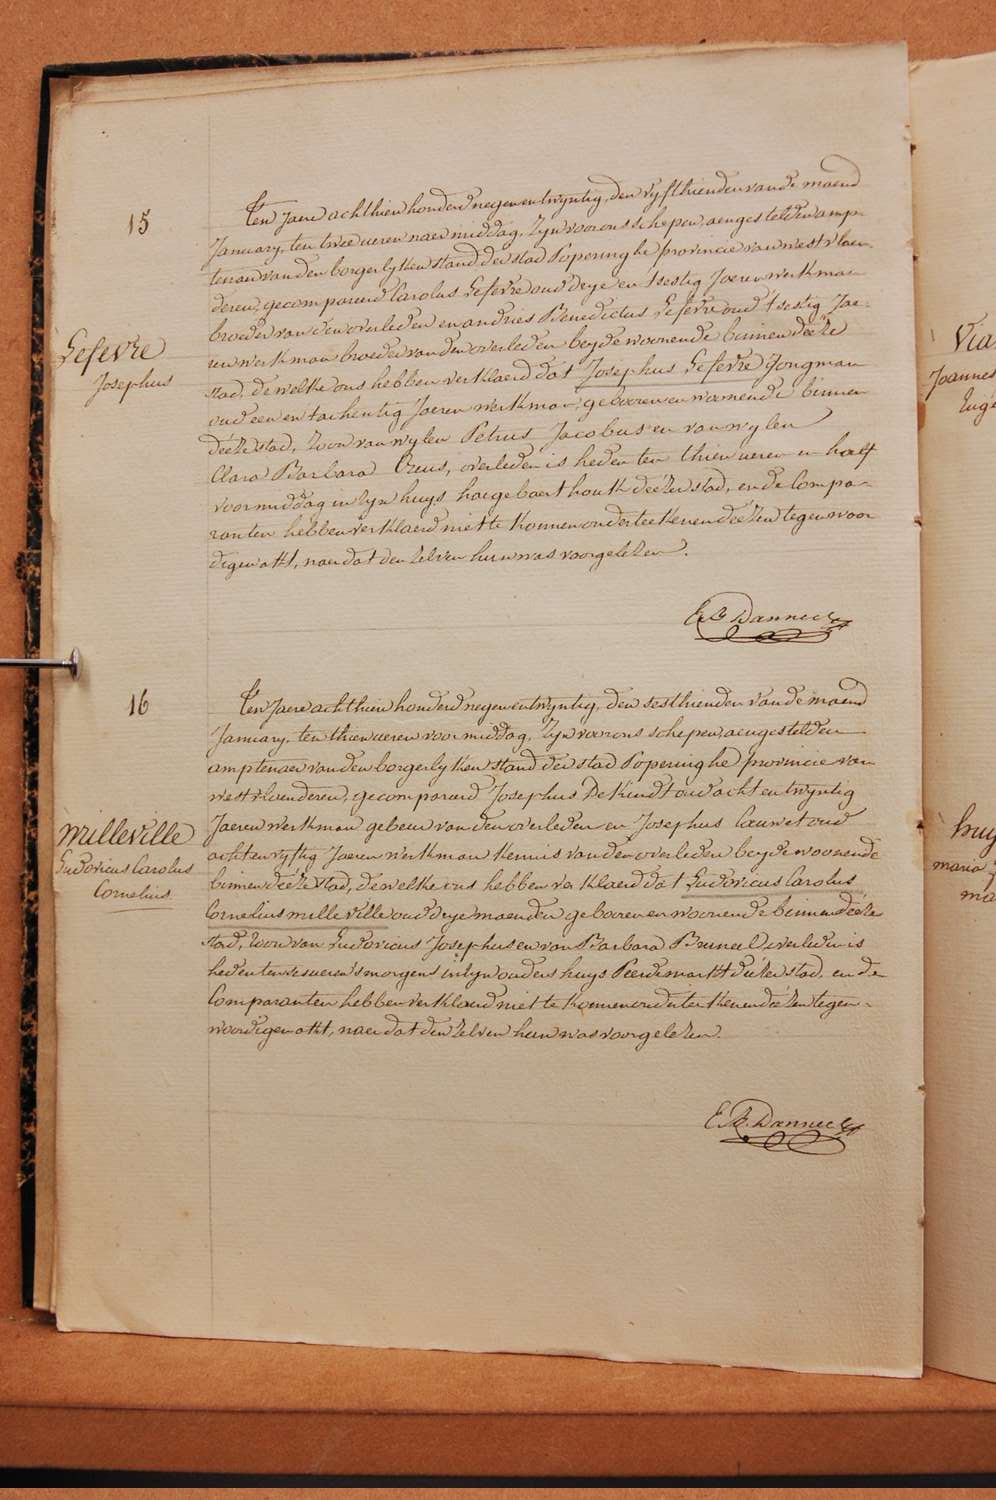 15
Lefevre
Josephus
Ten Jaere achthien honderd negenentwyntig, den vyfthienden vande maend
January, ten twee ueren naer middag, Zyn voor ons schepen, aengestelden amp-
tenaer van den borgerlyken stand der stad Poperinghe provincie van westvlaen-
deren, gecompareerd Carolus Lefevre oud drye en tsestig Jaeren werkman
broeder van den overleden en andries Benedictus Lefevre oud tsestig Jae-
ren werkman broeder van den overleden beyde woonende binnen deéze
stad, de welke ons hebben verklaerd dat Josephus Lefevre Jongman
oud een en tachentig Jaeren werkman, gebooren en woonende binnen
deéze stad, zoon van wylen Petrus Jacobus en van wylen
Clara Barbara Creus, overleden is heden ten thien ueren en half
voormiddag in zyn huys hoegebaert houk deézer stad, en de Compa-
ranten hebben verklaerd niet te konnen onderteekenen deézen tegenwoor
digen akt, naer dat den zelven hun was voorgelezen.
E. B. Danneel
16
Milleville
Ludovicus Carolus
Cornelius
Ten Jaere achthien honderd negenentwyntig, den sesthienden van de maend
January, ten thien ueren voormiddag, Zyn voor ons schepen, aengestelden
amptenaer van den borgerlyken stand der stad Poperinghe provincie van
westvlaenderen, gecompareerd Josephus DeKindt oud acht en twyntig
Jaeren werkman gebeur van den overleden en Josephus Cauwet oud
acht en vyftig Jaeren werkman kennis van den overleden beyde woonende
binnen deéze stad, de welke ons hebben verklaerd dat Ludovicus Carolus
Cornelius milleville oud drye maenden gebooren en woonende binnen deéze
stad, zoon van Ludovicus Josephus en van Barbara Bruneel, overleden is
heden ten ses ueren s'morgens in zyn ouders huys Peerdemarkt deézer stad, en de
Comparanten hebben verklaerd niet te konnen onderteekenen deézen tegen-
woordigen akt, naer dat den zelven hun was voorgelezen.
E. B. Danneel
Joannes
huy
maria